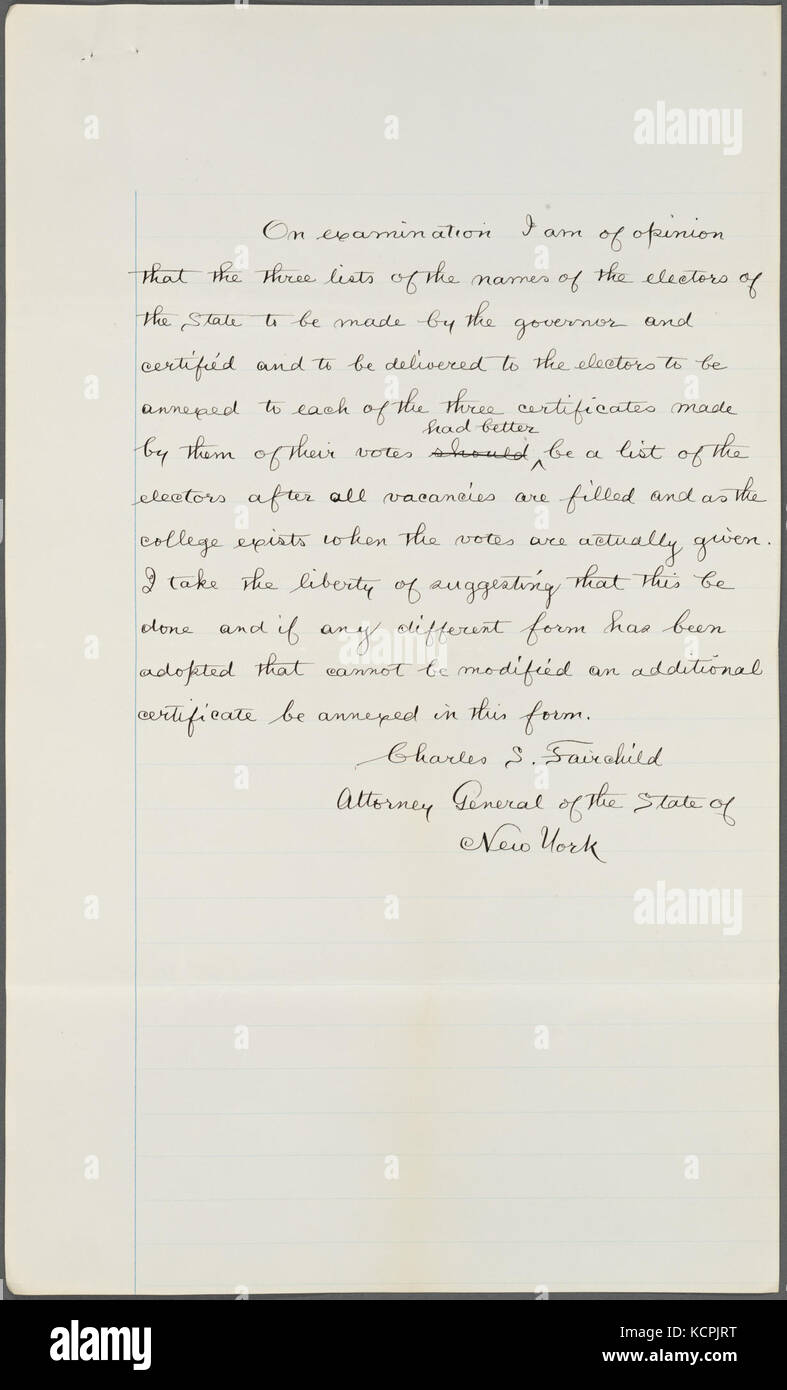 On examination I am of opinion
that the three lists of the names of the electors of
the State to be made by the governor and
certified and to be delivered to the electors to be
annexed to each of the three certificates made
had better
by them of their votes should ^ be a list of the
electors after all vacancies are filled and as the
college exists when the votes are actually given.
I take the liberty of suggesting that this be
done and if any different form has been
adopted that cannot be modified an additional
certificate be annexed in this form.
Charles S. Fairchild
Attorney General of the State of
New York
a a alamy
a a
a a a
a alamy a
a a
a a alamy
a a
a a a
alamy
Image ID: KCPJRT
www.alamy.com